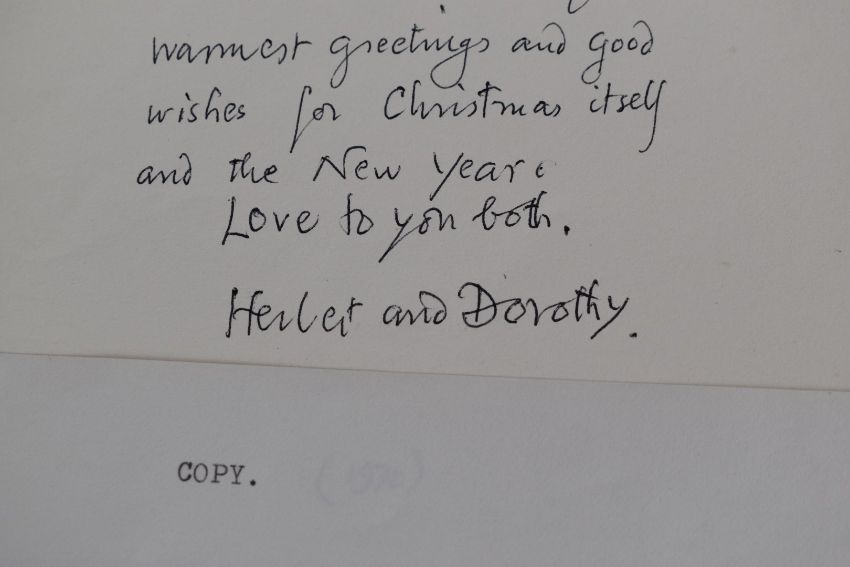 warmest greetings and good
wishes for Christmas itself
and the New Year.
Love to you both.
Herbert and Dorothy.
COPY.